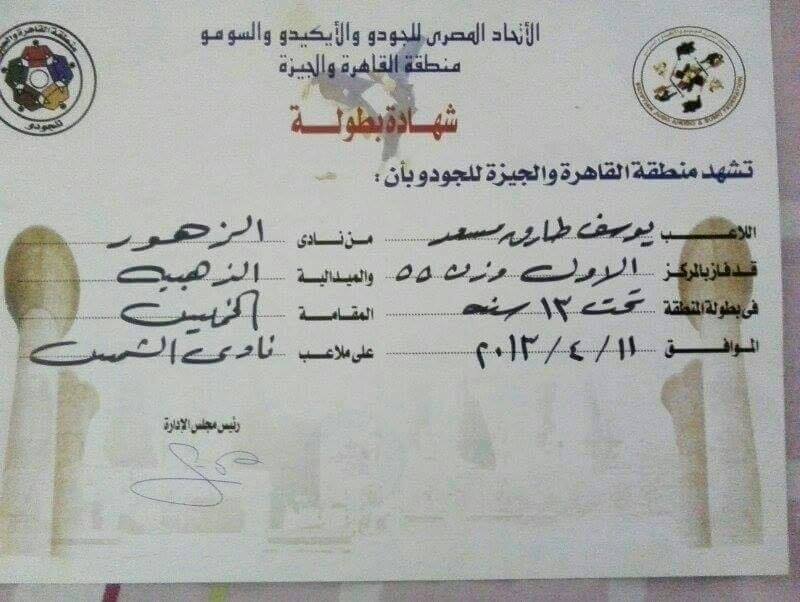 الأتحاد المصرى للجودو والأيكيدو والسومو
منطقة القاهرة والجيزة
شهادة بطولة
تشهد منطقة القاهرة والجيزة للجودو بأن :
اللاعب يوسف طارق مسعد من نادى الزهور
قد فاز بالمركز الاول وزن ٥٥ والميدالية الذهبية
فى بطولة المنطقة تحت ١٣ سنه المقامة الخميس
الموافق ١١ / ٤ / ٢٠١٣ على ملاعب نادى الشمس
رئيس مجلس الإدارة
منطقة القاهرة والجيزة
للجودو